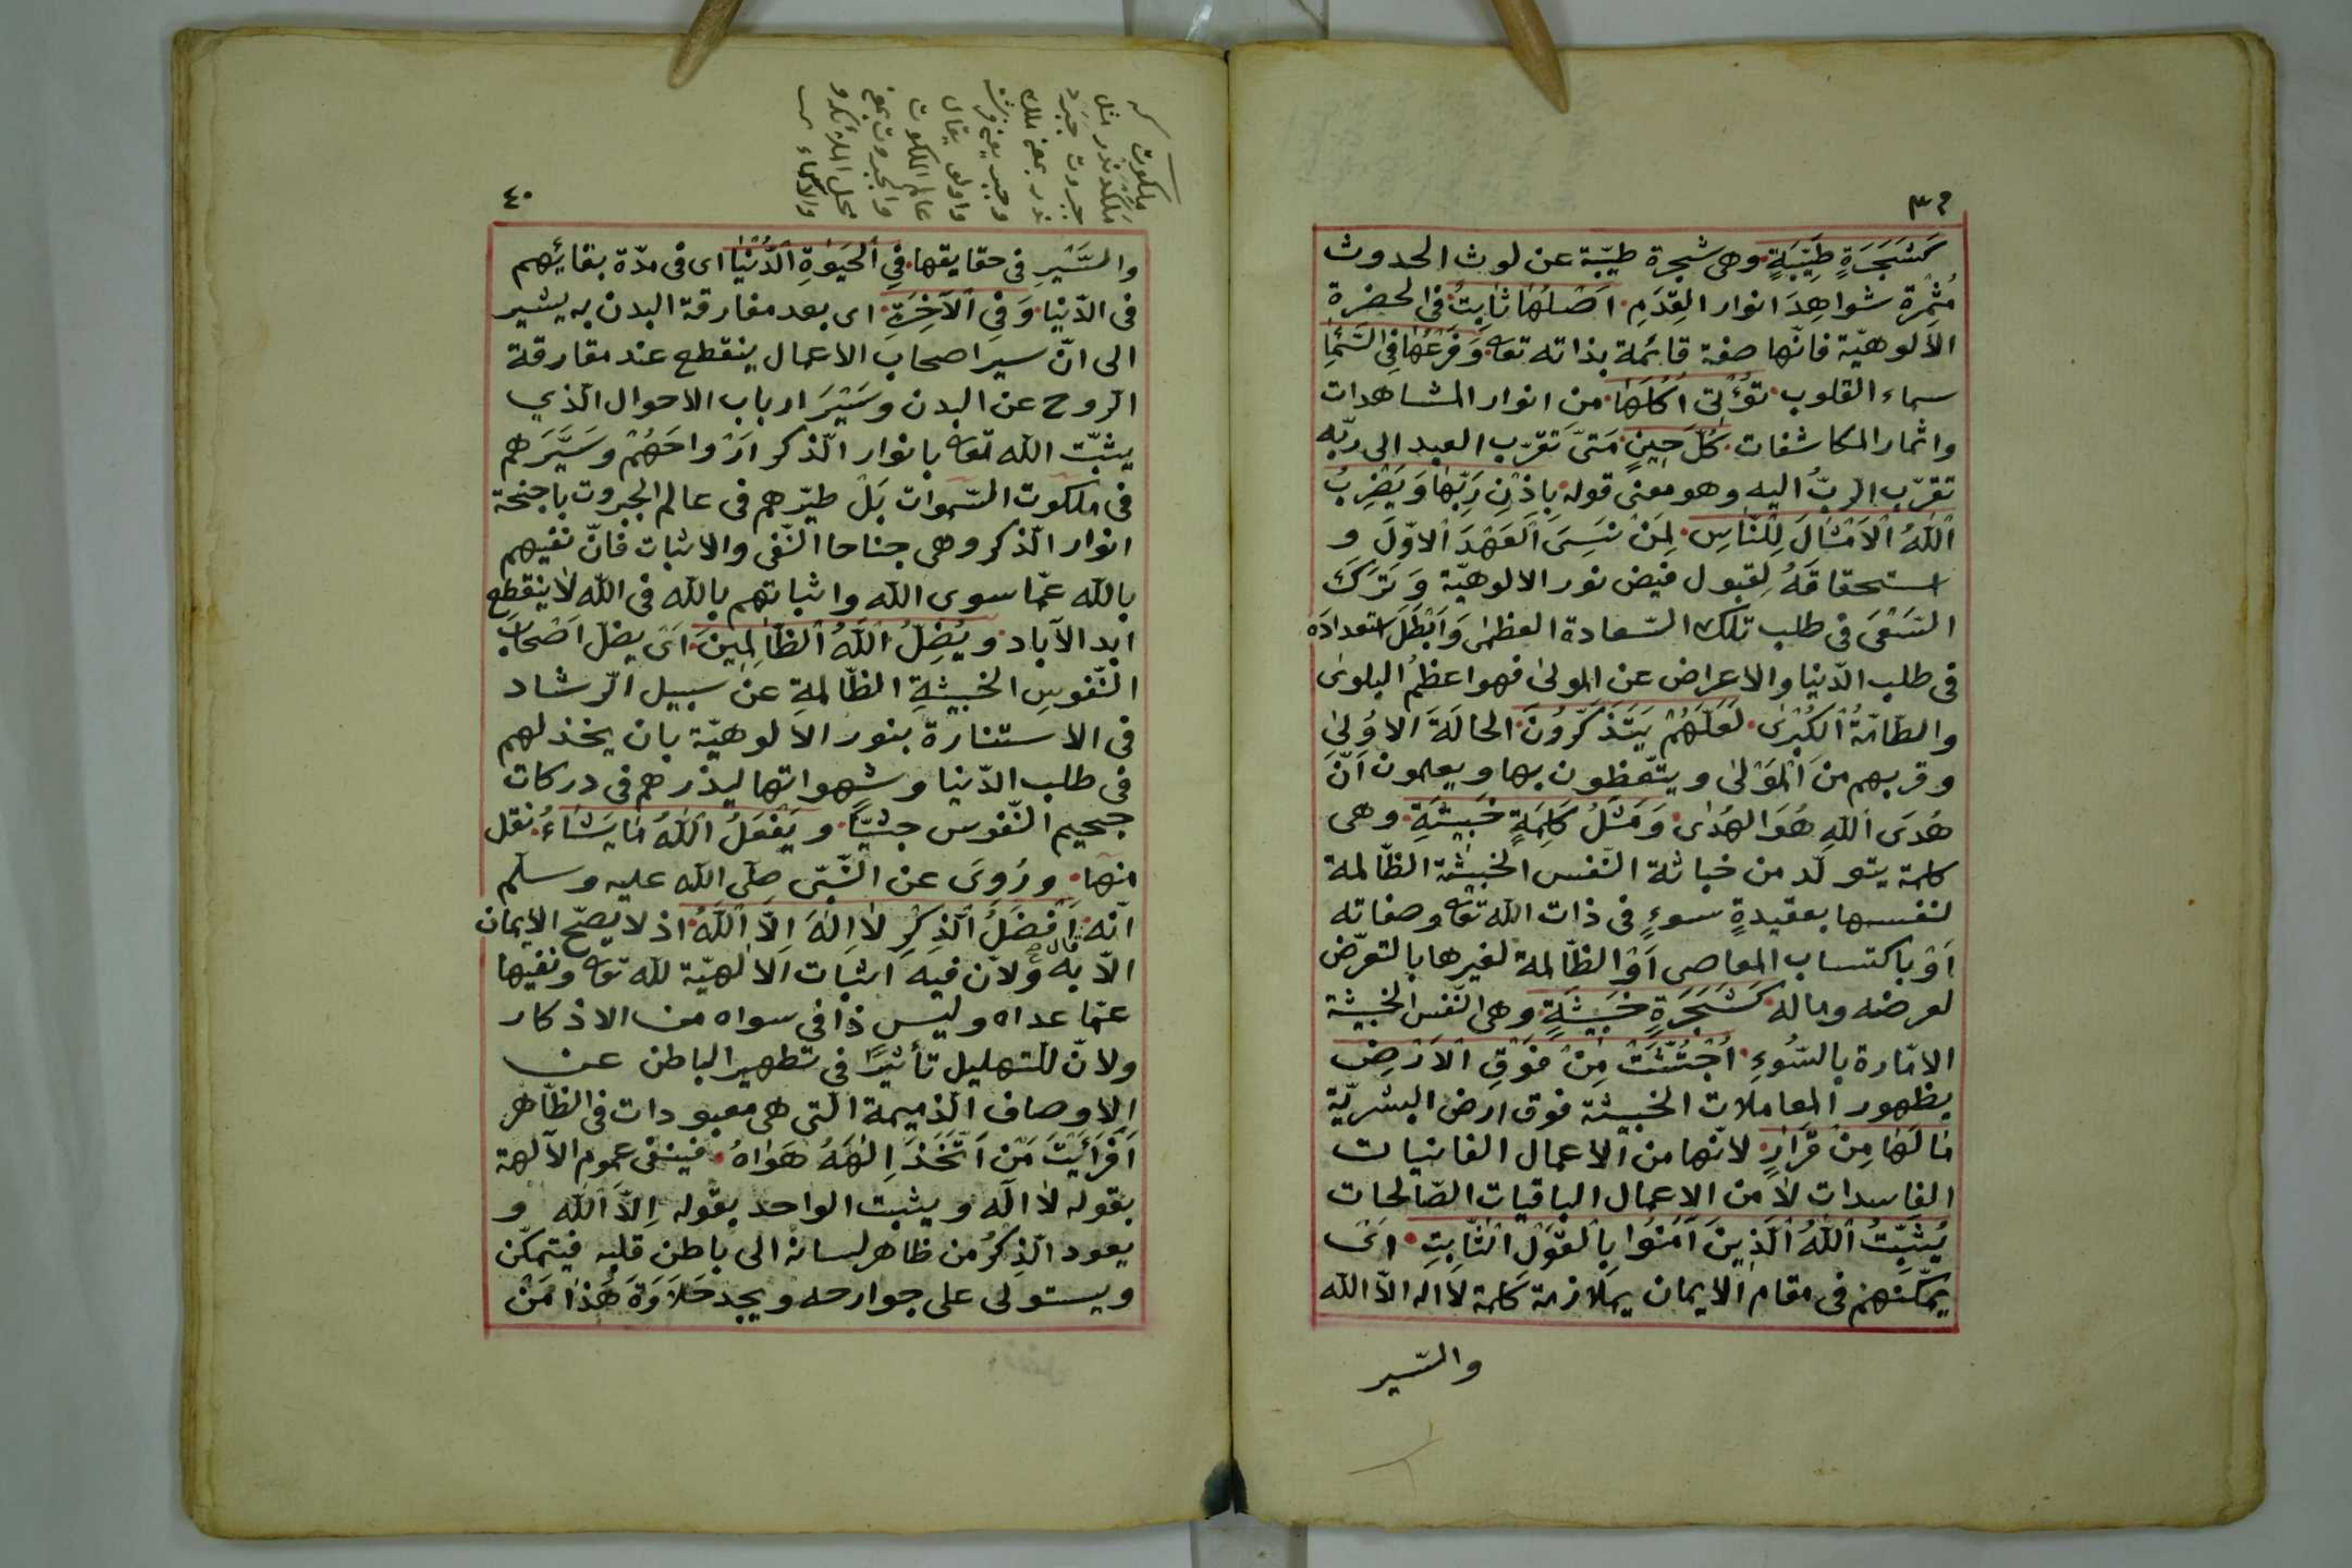 ٣٩
كَشَجَرَةٍ طَيِّبَةٍ وهى شجرة طيّبة عن لوث الحدوث
مُثْمِرة شواهِدَ انوار القِدَمِ اَصْلُهَا ثَابِتٌ فى الحضرة
الالوهيّة فانّها صفة قائمة بذاته تعا وَفَرْعُهَا فِى السَّمَاءِ
سماء القلوب تُؤْتِى اُكُلَهَا من انوار المشاهدات
واثمار المكاشفات كُلَّ حِينٍ مَتىَّ تقرّب العبد الى ربّه
تقرّب الربُّ اليه وهو معنى قوله بِاِذْنِ رَبِّهَا وَيَضْرِبُ
اللهُ الْاَمْثَالَ لِلنَّاسِ لِمَنْ نَسِىَ الْعَهْدَ الاوّلَ و
استحقاقَهُ لِقبول فيض نور الالوهيّة وَتَرَكَ
السَعْىَ فى طلب تلك السّعادة العظمى وَاَبْطَلَ استعدادَه
فى طلب الدّنيا والاعراض عن المولى فهو اعظمُ البلوى
والطّامّةُ الكُبْرى لَعَلَّهُمْ يَتَذَكَّرُونَ الحالَةَ الاُولىٰ
وقربهم من المَوْلىٰ ويتّعظون بها ويعلمون اَنَّ
هُدَى اللهِ هُوَ الهُدٰى وَمَثَلُ كَلِمَةٍ خَبِيثَةٍ وهى
كلمة يتولّد من خباثة النّفس الخبيثة الظّالمة
لنفسها بعقيدةٍ سوءٍ فى ذات الله تعا وصفاته
اَوْ باكتساب المعاصى اَوْ الظّالمة لغيرها بالتعرّض
لعرضه وماله كَشَجَرَةٍ خَبِيثَةٍ وهى النّفس الخبيثة
الامّارة بالسّوءِ اُجْتُثَّتْ مِنْ فَوْقِ الْاَرْضِ
بظهور المعاملات الخبيثة فوق ارض البشريّة
مَا لَهَا مِنْ قَرَارٍ لانّها من الاعمال الفانيات
الفاسدات لا من الاعمال الباقيات الصّالحات
يُثَبِّتُ اللهُ الَّذِينَ آمَنُوا بِالْقَوْلِ الثَّابِتِ اَىْ
يمكّنهم فى مقام الايمان بملازمة كلمة لا اله الّا الله
والسّير
٤٠
ملكوت
جبروت
يقال
عالم الملكوت
والسَّيْرِ فى حقايقها فِى الْحَيٰوةِ الدُّنْيَا اى فى مدّة بقائِهم
فى الدّنيا وَفِى الْآخِرَةِ اى بعد مفارقة البدن به يشير
الى انّ سير اصحاب الاعمال ينقطع عند مفارقة
الروح عن البدن وسَيْرَ ارباب الاحوال الذي
يثبّت الله تعا بانوار الذكر اَرْواحَهُمْ وسَيَّرَهم
فى ملكوت السّموات بَلْ طيّرهم فى عالم الجبروت باجنحة
انوار الذكر وهى جناحا النّفى والاثبات فانّ نفيهم
بالله عمّا سوى الله واثباتهم بالله فى الله لا ينقطع
ابد الآباد وَيُضِلُّ اللهُ الظَّالِمِينَ اَىْ يضلّ اَصْحابَ
النّفوسِ الخبيثةِ الظّالمةِ عن سبيل الرّشاد
فى الاستنارة بنور الالوهيّة بان يخذلهم
فى طلب الدّنيا وشهواتها ليذرهم فى دركات
جحيم النّفوس جثيّا وَيَفْعَلُ اللهُ مَا يَشَاءُ نقل
منها ورُوِىَ عن النّبىّ صلّى الله عليه وسلّم
انّه قال اَفْضَلُ الذِكْرِ لَا اِلٰهَ اِلَّا اللهُ اذ لا يصحّ الايمان
الّا به ولانّ فيه اثبات الالٰهيّة لله تعا ونفيها
عمّا عداه وليس ذا فى سواه من الاذكار
ولانّ للتهليل تأثيرًا فى تطهير الباطن عن
الاوصاف الذميمة التى هى معبودات فى الظّاهر
اَفَرَأَيْتَ مَنْ اتَّخَذَ اِلٰهَهُ هَوَاهُ فينفى عموم الآلهة
بقوله لا اله ويثبت الواحد بقوله اِلّا الله و
يعود الذِكرُ من ظاهر لسانه الى باطن قلبه فيتمكّن
ويستولى على جوارحه ويجد حَلَاوَةَ هَذا مَنْ